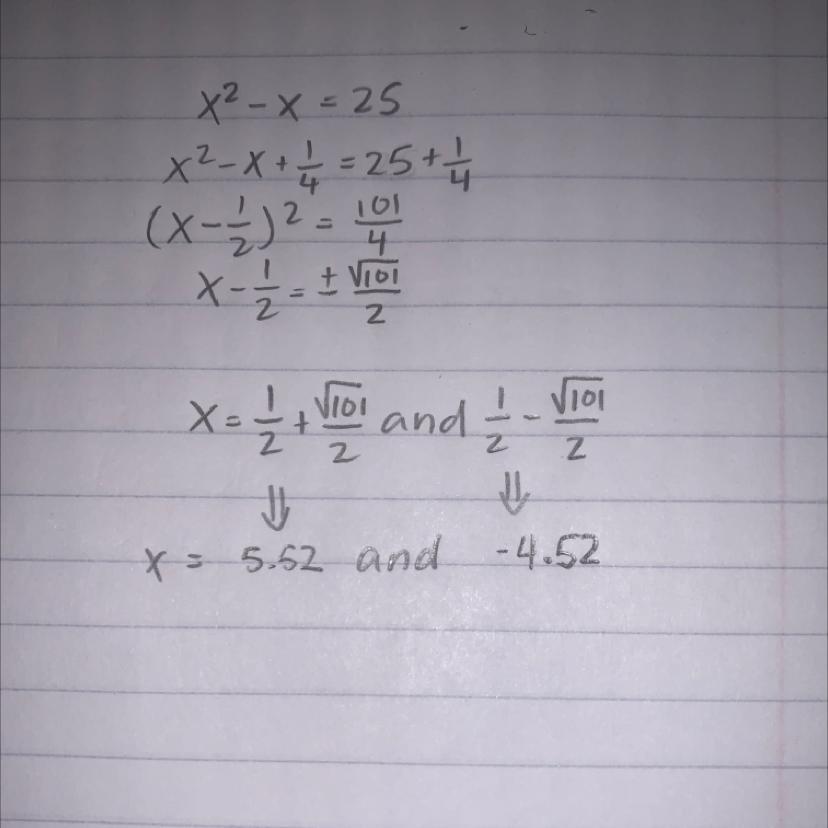 x² - x = 25
x² - x + 1/4 = 25 + 1/4
(x - 1/2)² = 101/4
x - 1/2 = ± √101/2
x = 1/2 + √101/2 and 1/2 - √101/2
⇓ ⇓
x = 5.52 and -4.52